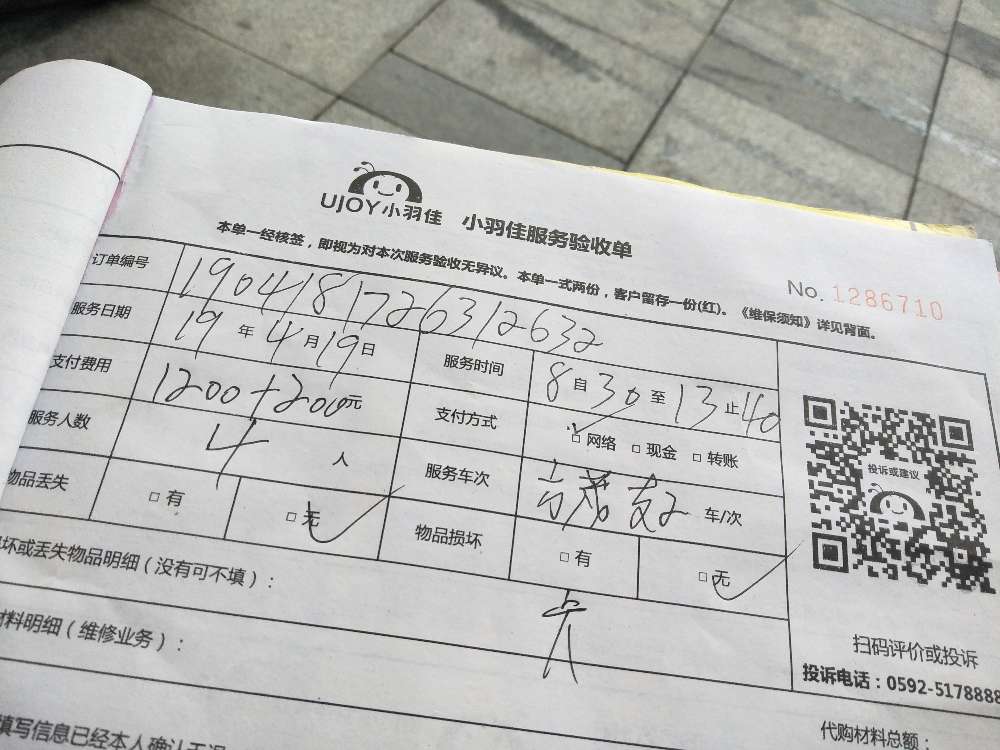 UJOY小羽佳 小羽佳服务验收单
本单一经核签，即视为对本次服务验收无异议。本单一式两份，客户留存一份(红)。《维保须知》详见背面。
No. 1286710
订单编号 1904181726312632
服务日期 19 年 4 月 19 日 服务时间 8 自 30 至 13 止 40
支付费用 1200+200元 支付方式 □ 网络 □ 现金 □ 转账
服务人数 4 人 服务车次 车/次
物品丢失 □ 有 □ 无 物品损坏 □ 有 □ 无
坏或丢失物品明细（没有可不填）：
材料明细（维修业务）：
填写信息已经本人确认无误
投诉或建议
扫码评价或投诉
投诉电话：0592-5178888
代购材料总额：